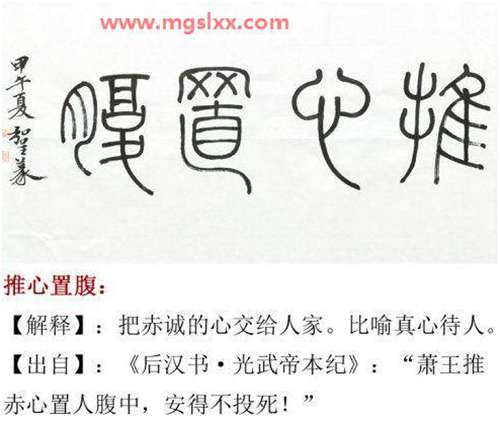 www.mgslxx.com
推心置腹
甲午夏
推心置腹：
【解释】：把赤诚的心交给人家。比喻真心待人。
【出自】：《后汉书·光武帝本纪》：“萧王推
赤心置人腹中，安得不投死！”